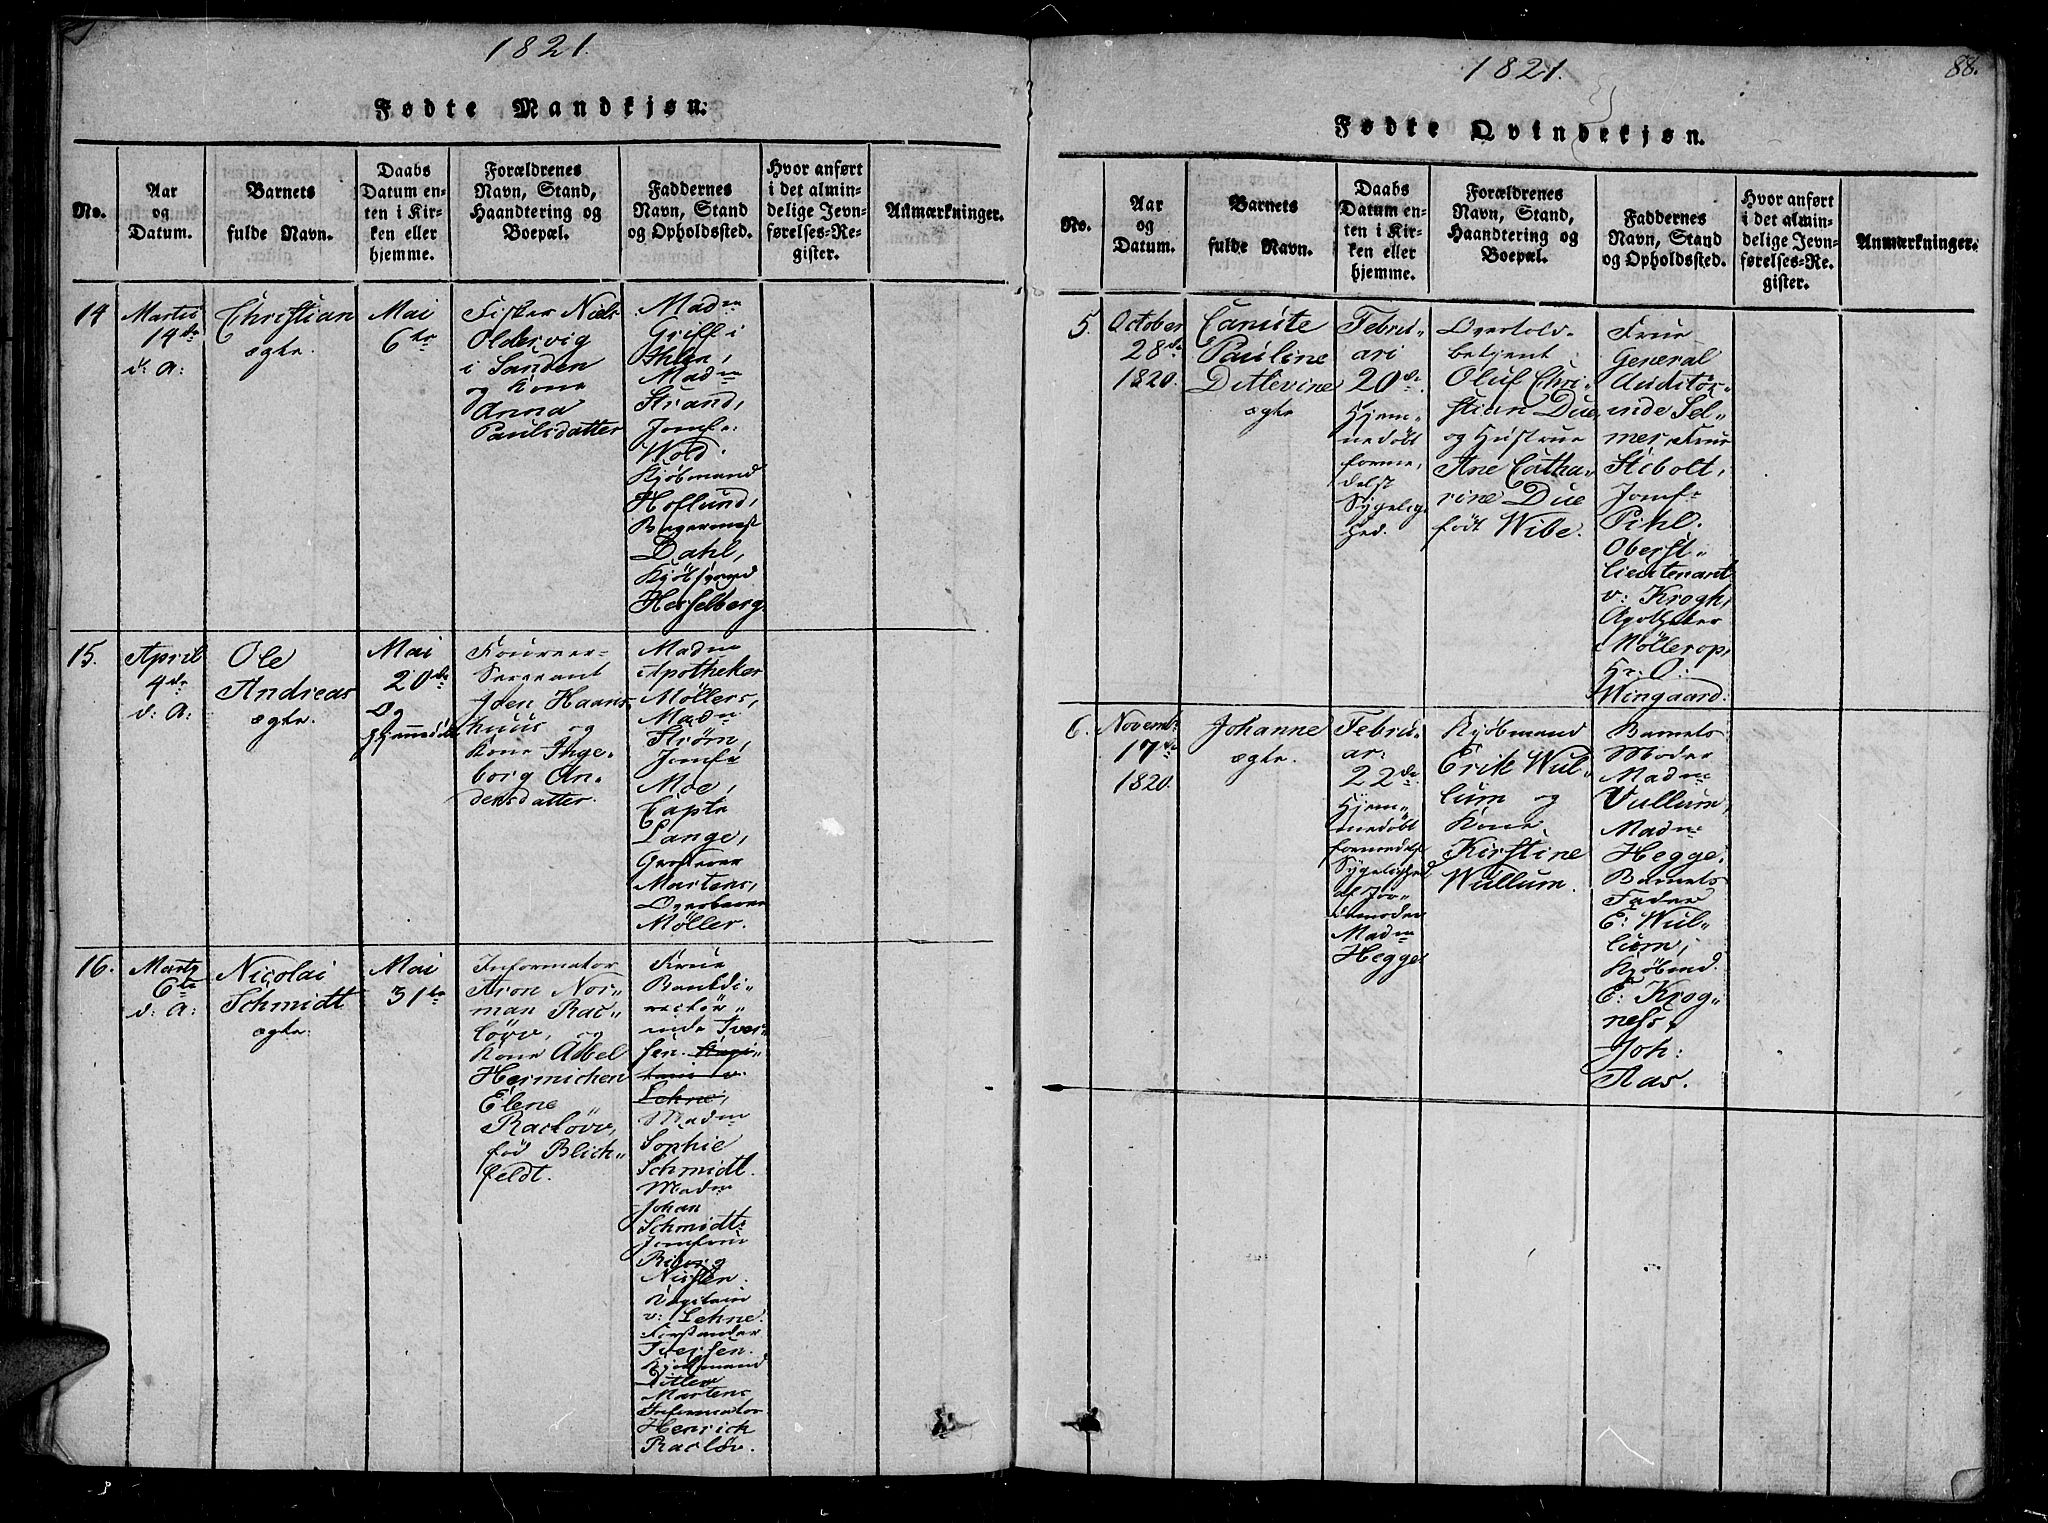 1821.
Fødte Mandkjøn.
No.
Aar
og
Datum.
Barnets
fulde Navn.
Daabs
Datum en-
ten i Kir-
ken eller
hjemme.
Forældrenes
Navn, Stand,
Haandtering og
Boepæl.
Faddernes
Navn, Stand
og Opholdssted.
Hvor anført
i det almin-
delige Jevn-
førelses-Re-
gister.
Anmærkninger.
14
Martii
14de
d: A:
Christian
ægte.
Mai
6te
Fisker Niels
Oldervig
i Sanden
og Kone
Anna
Paulsdatter
Madm
Griff i
Ihlen,
Madm
Strand,
Jomfr:
Wold.
Kjøbmand
Hoflund,
Bagermest
Dahl,
Kjøbmand
Hesselberg.
15.
April
4de
d: A:
Ole
Andreas
ægte.
Mai
20de
Og
Hjemmedøbt
Fourier-
Sergeant
Iden Haans
huus og
Kone Inge-
borg An-
dersdatter.
Madm
Apotheker
Møllers,
Madm
Strøm,
Jomfr
Moe,
Captn
Lange,
Martens,
Møller.
16.
Martz
6te
d: A:
Nicolai
Schmidt
ægte.
Mai
31te
Informator
Aron Nor-
man Rac-
løw, og
Kone Abel
Hermichen
Elene
Racløw,
fød Blich-
feldt.
Frue
Bankdi-
recteur-
inde Iver-
sen. Capi-
tain v.
Lehne,
Madm
Sophie
Schmidt.
Madm
Johan
Schmidt.
Jomfrue
Riborg
Nissen.
Capitain
v: Lehne.
Forstander
Iversen.
Kjøbmand
Ditlev
Martens
Informator
Henrich
Racløw.
1821.
88.
Fødte Qvindekjøn.
No.
Aar
og
Datum.
Barnets
fulde Navn.
Daabs
Datum en-
ten i Kir-
ken eller
hjemme.
Forældrenes
Navn, Stand,
Haandtering og
Boepæl.
Faddernes
Navn, Stand
og Opholdssted.
Hvor anført
i det almin-
delige Jevn-
førelses-Re-
gister.
Anmærkninger.
5.
October
28de
1820.
Camite
Pauline
Ditlevine
ægte
Febru-
ari
20de
Hjem-
medøbt
forme-
delst
Sygelig-
hed.
Overtold-
betjent
Oluf Chri-
stian Due,
og Hustrue
Ane Catha-
rine Due
født Wibe.
Frue
General
Auditør-
inde Sel-
mer, Frue
Stibolt,
Jomfr
Pihl.
Oberst-
lieutenant
v: Krogh,
Apotheker
Møllerop,
Hr. O.
Wingaard.
6.
Novembr
17de
1820.
Johanne
ægte.
Febru-
ar.
22de
Hjem-
medøbt
formedelst
Sygelighed
af Jor-
demoder
Madm
Hegge.
Kjøbmand
Erik Wul-
lum og
Kone
Kirstine
Wullum.
Barnets
Moder
Madm
Vullum,
Madm
Hegge.
Barnets
Fader
E: Wul-
lum,
Kjøbmd
E: Krog-
ness,
Joh:
Aas.